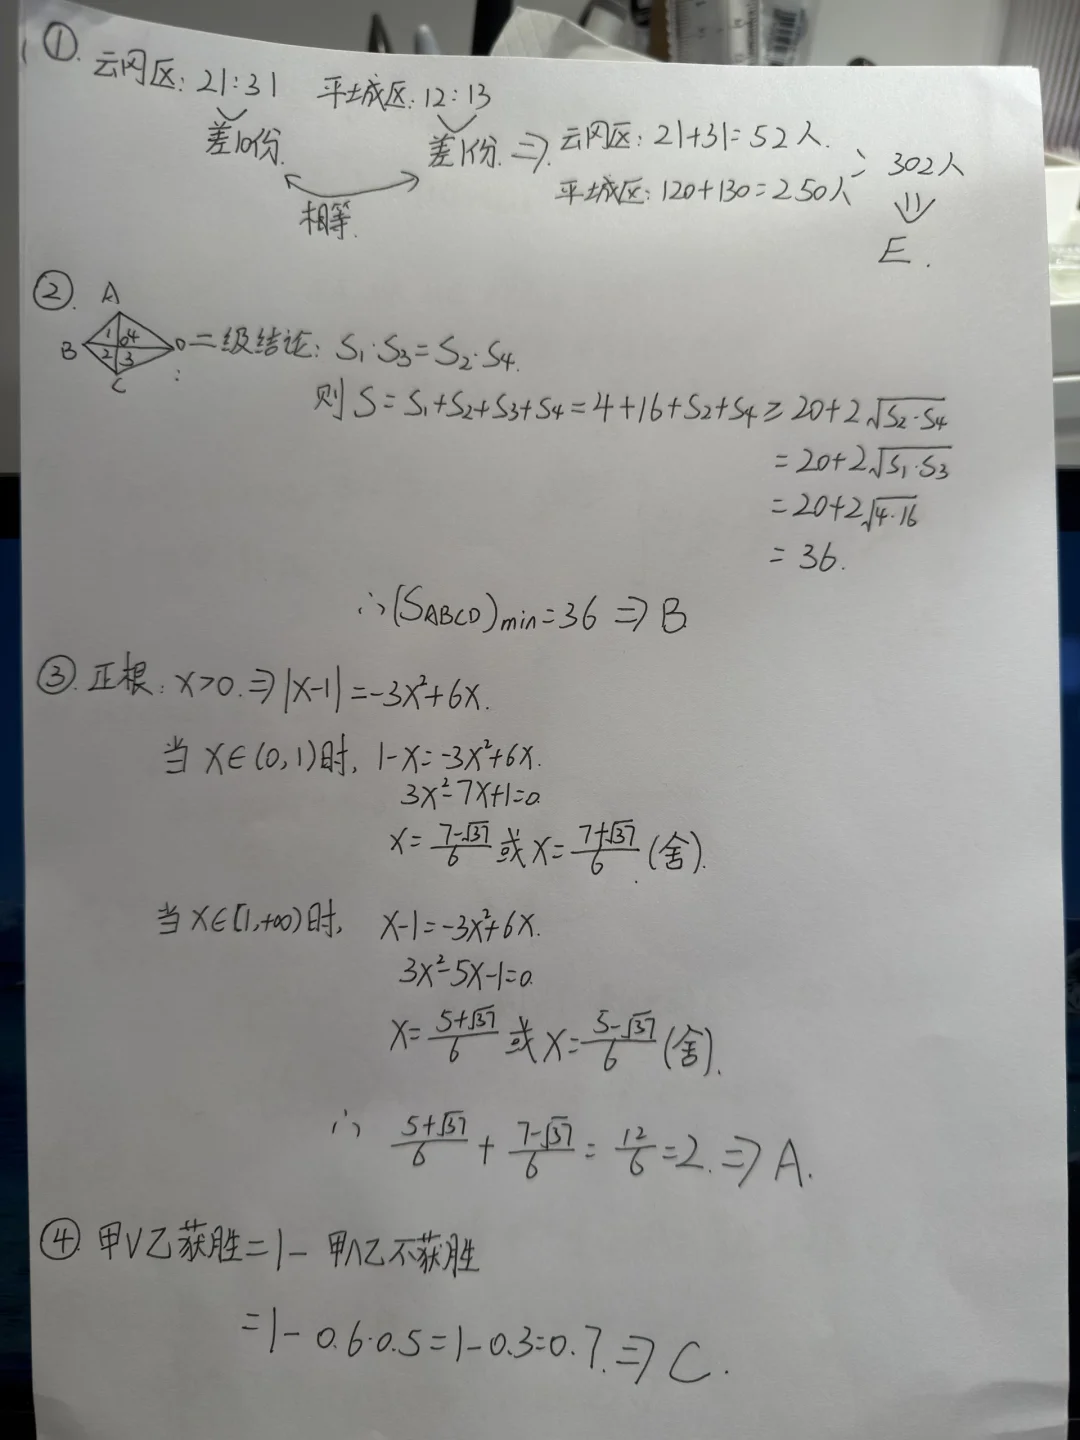 ①. 云冈区: 21:31 平城区: 12:13
差10份. 差1份. ⇒ 云冈区: 21+31=52人. 302人
相等. 平城区: 120+130=250人 ⇓
E.
②. A
B 1 0 4 D 二级结论: S₁·S₃=S₂·S₄.
2 3
C
则 S=S₁+S₂+S₃+S₄=4+16+S₂+S₄≥20+2√(S₂·S₄)
=20+2√(S₁·S₃)
=20+2√(4·16)
=36.
∴(S_ABCD)min=36 ⇒ B
③. 正根: x>0. ⇒ |x-1|=-3x²+6x.
当 x∈(0,1)时, 1-x=-3x²+6x.
3x²-7x+1=0.
x=(7-√37)/6 或 x=(7+√37)/6 (舍).
当 x∈[1,+∞)时, x-1=-3x²+6x.
3x²-5x-1=0.
x=(5+√37)/6 或 x=(5-√37)/6 (舍).
∴ (5+√37)/6 + (7-√37)/6 = 12/6 =2. ⇒ A.
④. 甲∨乙获胜=1- 甲∧乙不获胜
=1-0.6·0.5=1-0.3=0.7. ⇒ C.